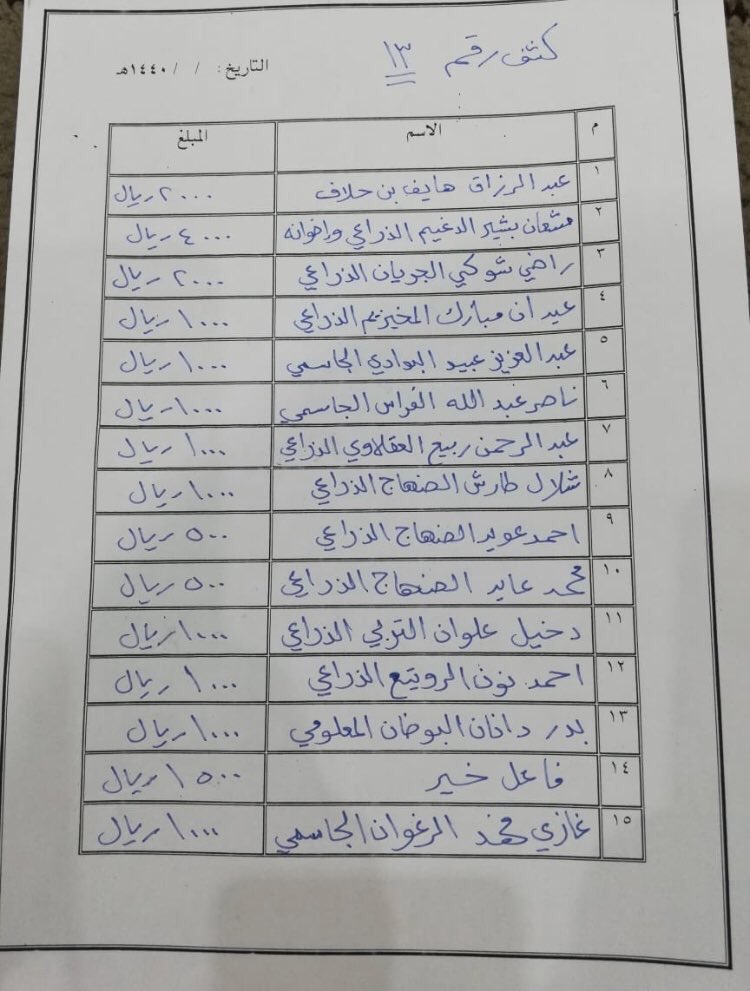 كشف رقم ١٣
التاريخ: / / ١٤٤٠هـ
م الاسم المبلغ
١ عبد الرزاق هايف بن حلاف ٢٠٠٠ ريال
٢ مشعان بشير الدغيم الذراعي واخوانه ٤٠٠٠ ريال
٣ راضي شوكي الجريان الذراعي ٢٠٠٠ ريال
٤ عيد ان مبارك المخيزيم الذراعي ١٠٠٠ ريال
٥ عبدالعزيز عبيد البوادي الجاسمي ١٠٠٠ ريال
٦ ناصر عبد الله الفراس الجاسمي ١٠٠٠ ريال
٧ عبد الرحمن ربيع العقلاوي الذراعي ١٠٠٠ ريال
٨ شلال طارش الصنهاج الذراعي ١٠٠٠ ريال
٩ احمد عويد الصنهاج الذراعي ٥٠٠ ريال
١٠ محمد عايد الصنهاج الذراعي ٥٠٠ ريال
١١ دخيل علوان التربي الذراعي ١٠٠٠ ريال
١٢ احمد نون الرويتع الذراعي ١٠٠٠ ريال
١٣ بدر دانان البوضان المعلومي ١٠٠٠ ريال
١٤ فاعل خير ١٥٠٠ ريال
١٥ غازي محمد الرغوان الجاسمي ١٠٠٠ ريال